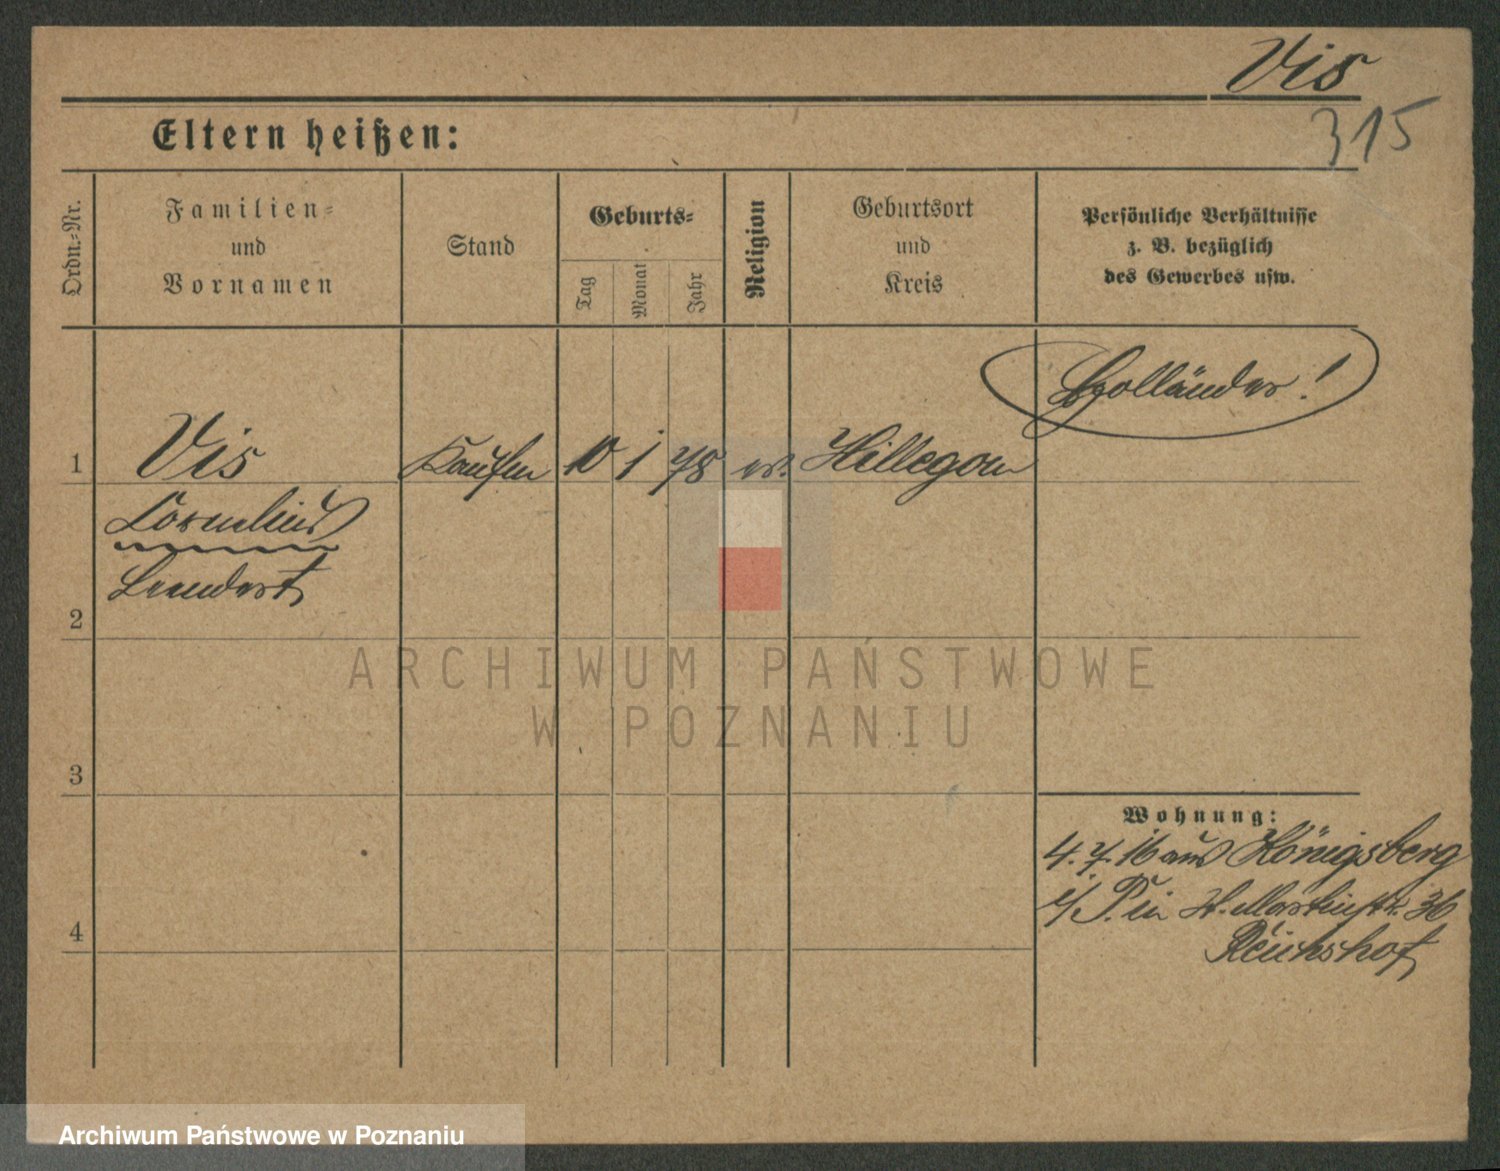 Vis
315
Eltern heißen:
Ordn.-Nr.
Familien-
und
Vornamen
Stand
Geburts-
Tag
Monat
Jahr
Religion
Geburtsort
und
Kreis
Persönliche Verhältnisse
z. B. bezüglich
des Gewerbes usw.
Holländer!
1
Vis
Kaufm
10
1
78
ev.
Hillegom
Cornelius
Leendert
2
ARCHIWUM PAŃSTWOWE
W POZNANIU
3
Wohnung:
4.7.16 aus Königsberg
i/P. in St. Martinstr. 36
Reichshof
4
Archiwum Państwowe w Poznaniu